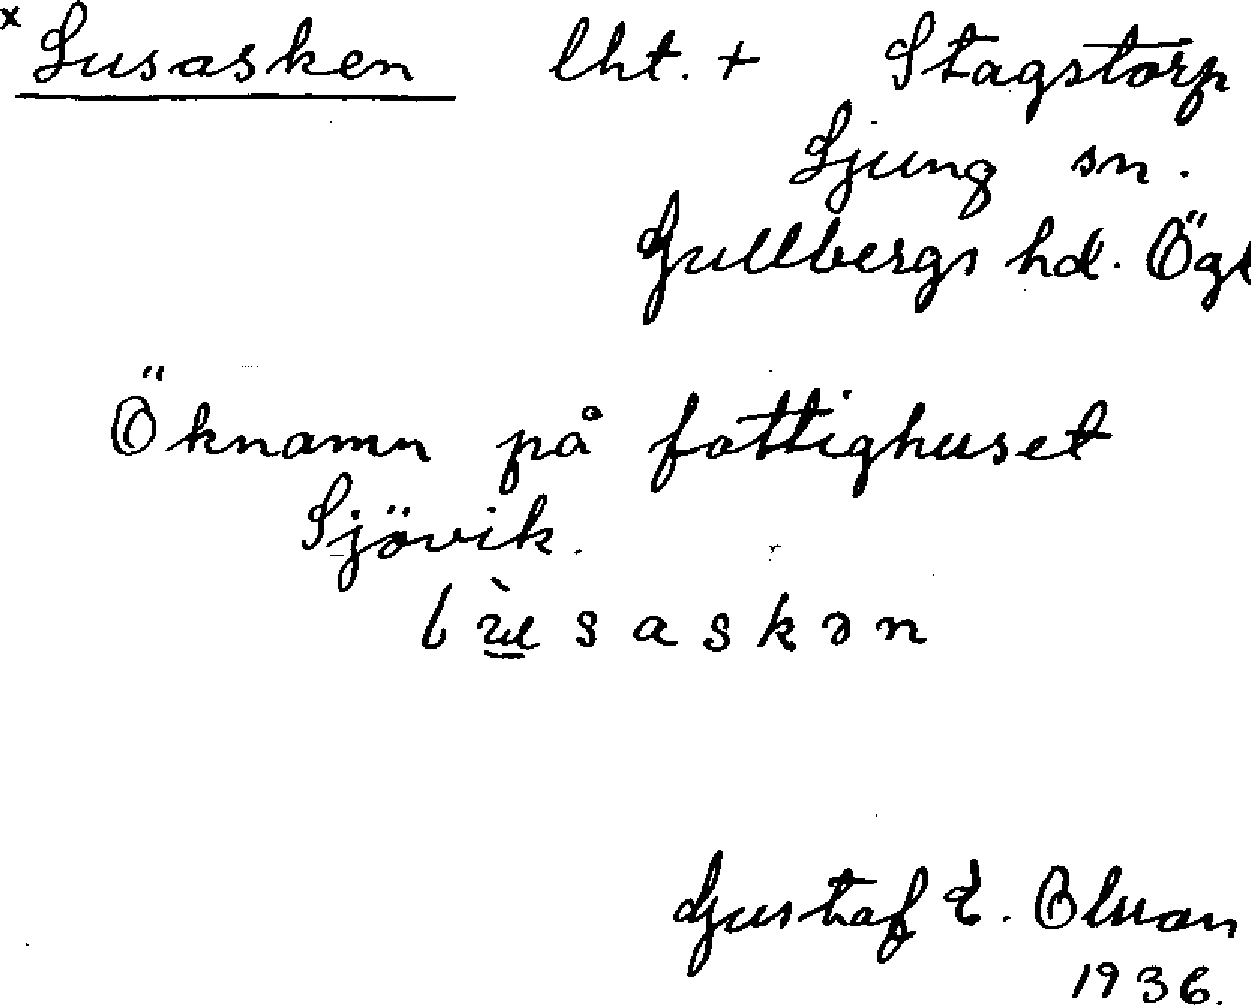 x Lusasken lht. + Stagstorp
Ljung sn.
Gullbergs hd. Ögl
Öknamn på fattighuset
Sjövik.
lù̲saskən
Gustaf E. Olson
1936.